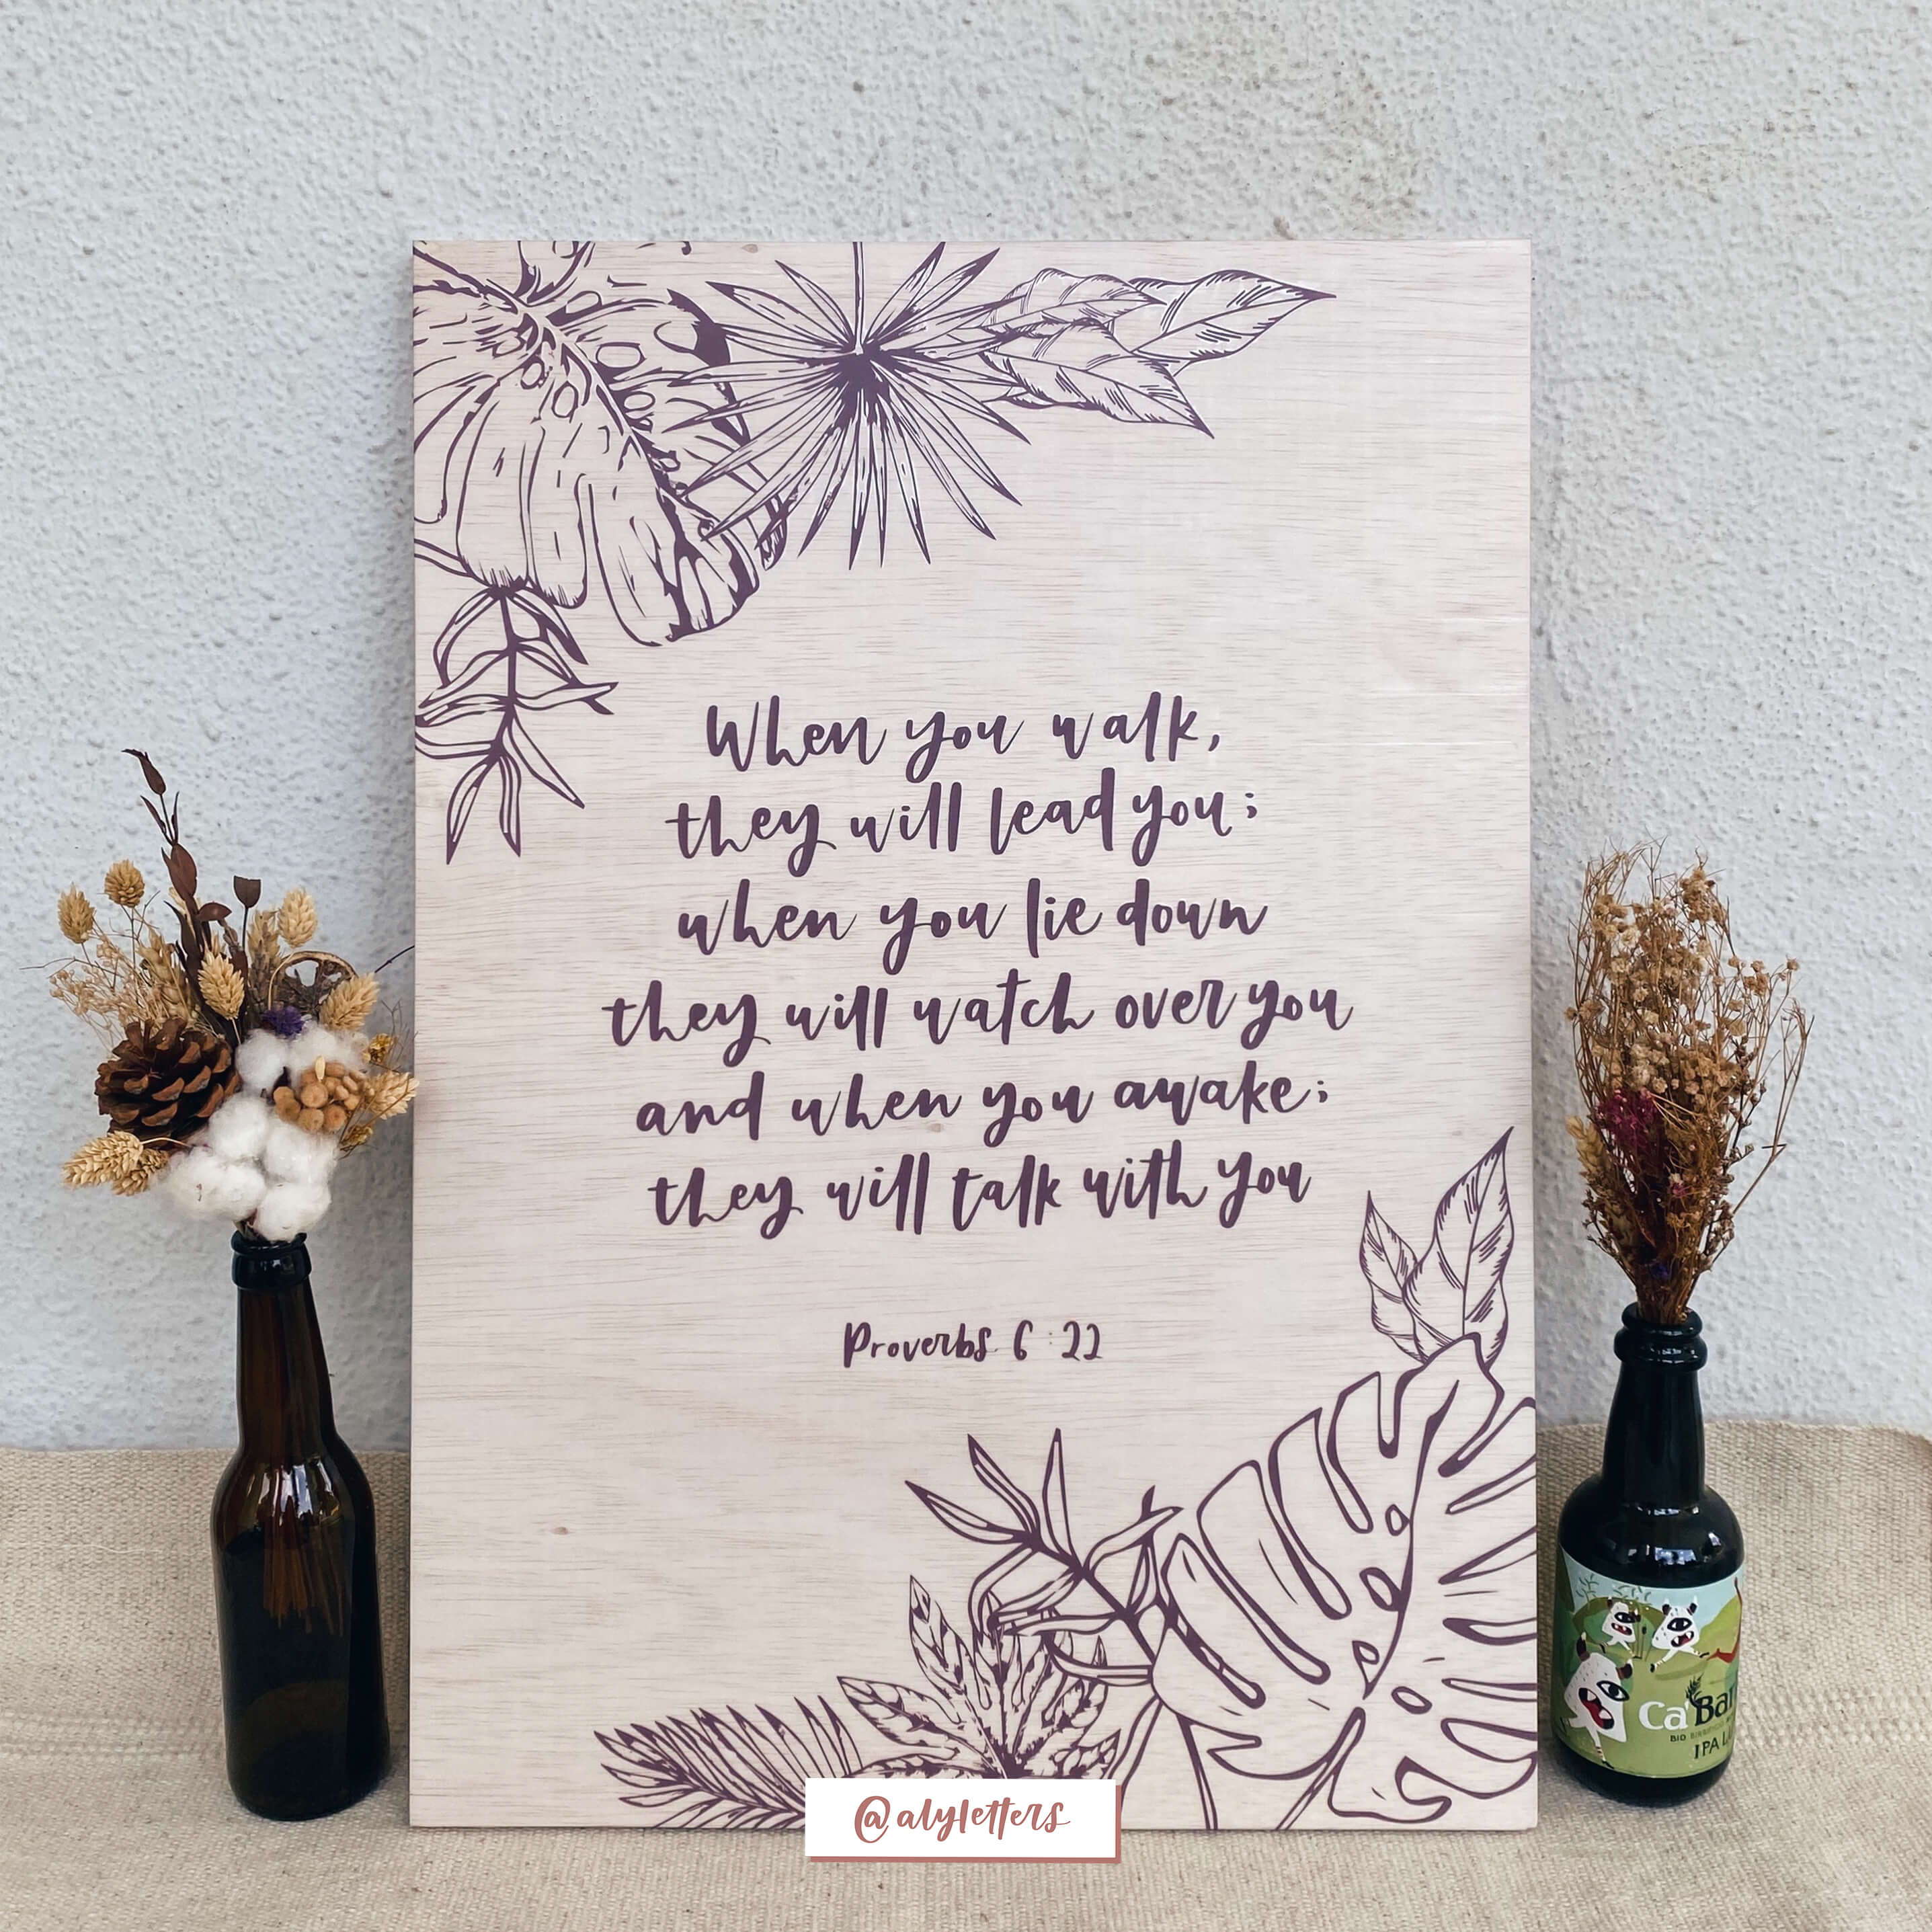 When you walk,
they will lead you;
when you lie down
they will watch over you
and when you awake;
they will talk with you
Proverbs 6:22
@alyletters
Ca'Bar
IPA